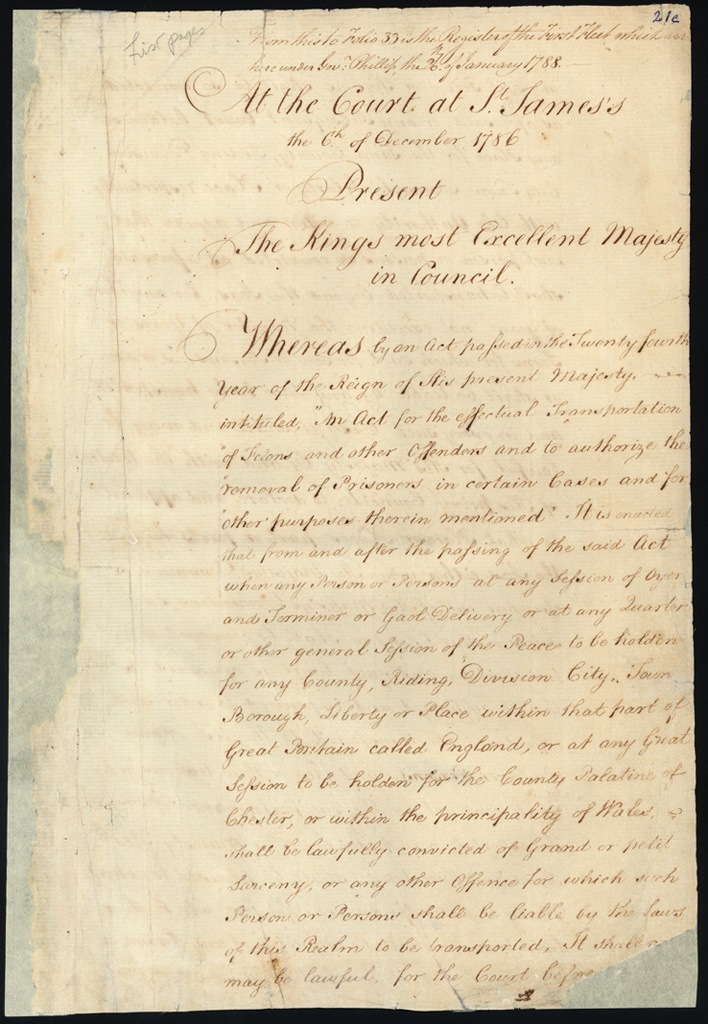 21c
First pages
From this to Folio 33 is the Register of the First Fleet which
here under Govr. Phillip the 26th of January 1788. —
At the Court at St. James's
the 6th of December 1786
Present
The Kings most Excellent Majesty
in Council.
Whereas by an Act passed in the Twenty fourth
Year of the Reign of His present Majesty.
intituled, "An Act for the effectual Transportation
"of Felons and other Offenders and to authorize the
"removal of Prisoners in certain Cases and for
"other purposes therein mentioned" It is enacted
that from and after the passing of the said Act
when any Person or Persons at any Session of Oyer
and Terminer or Gaol Delivery or at any Quarter
or other general Session of the Peace to be holden
for any County, Riding, Division City, Town
Borough, Liberty or Place within that part of
Great Britain called England, or at any Great
Session to be holden for the County Palatine of
Chester, or within the principality of Wales,
shall be lawfully convicted of Grand or petit
Larceny, or any other Offence for which such
Person or Persons shall be liable by the Laws
of this Realm to be transported, It shall
may be lawful for the Court before